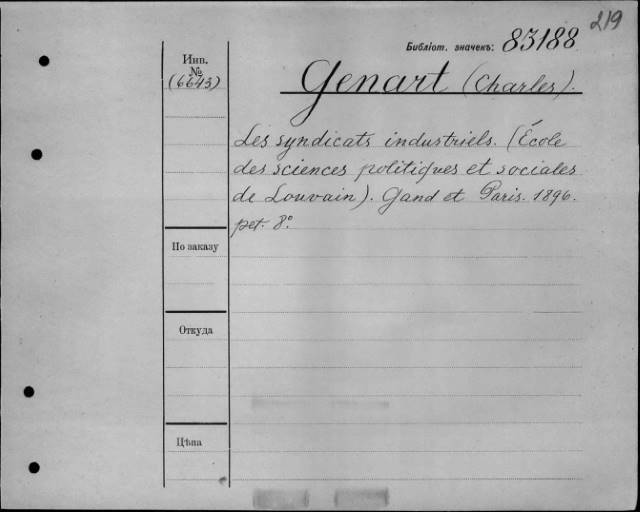 219
Библіот. значекъ: 83188
Инв.
№
(6643)
Genart (Charles).
Les syndicats industriels. (École
des sciences politiques et sociales
de Louvain). Gand et Paris. 1896.
pet. 8°.
По заказу
Откуда
Цѣна